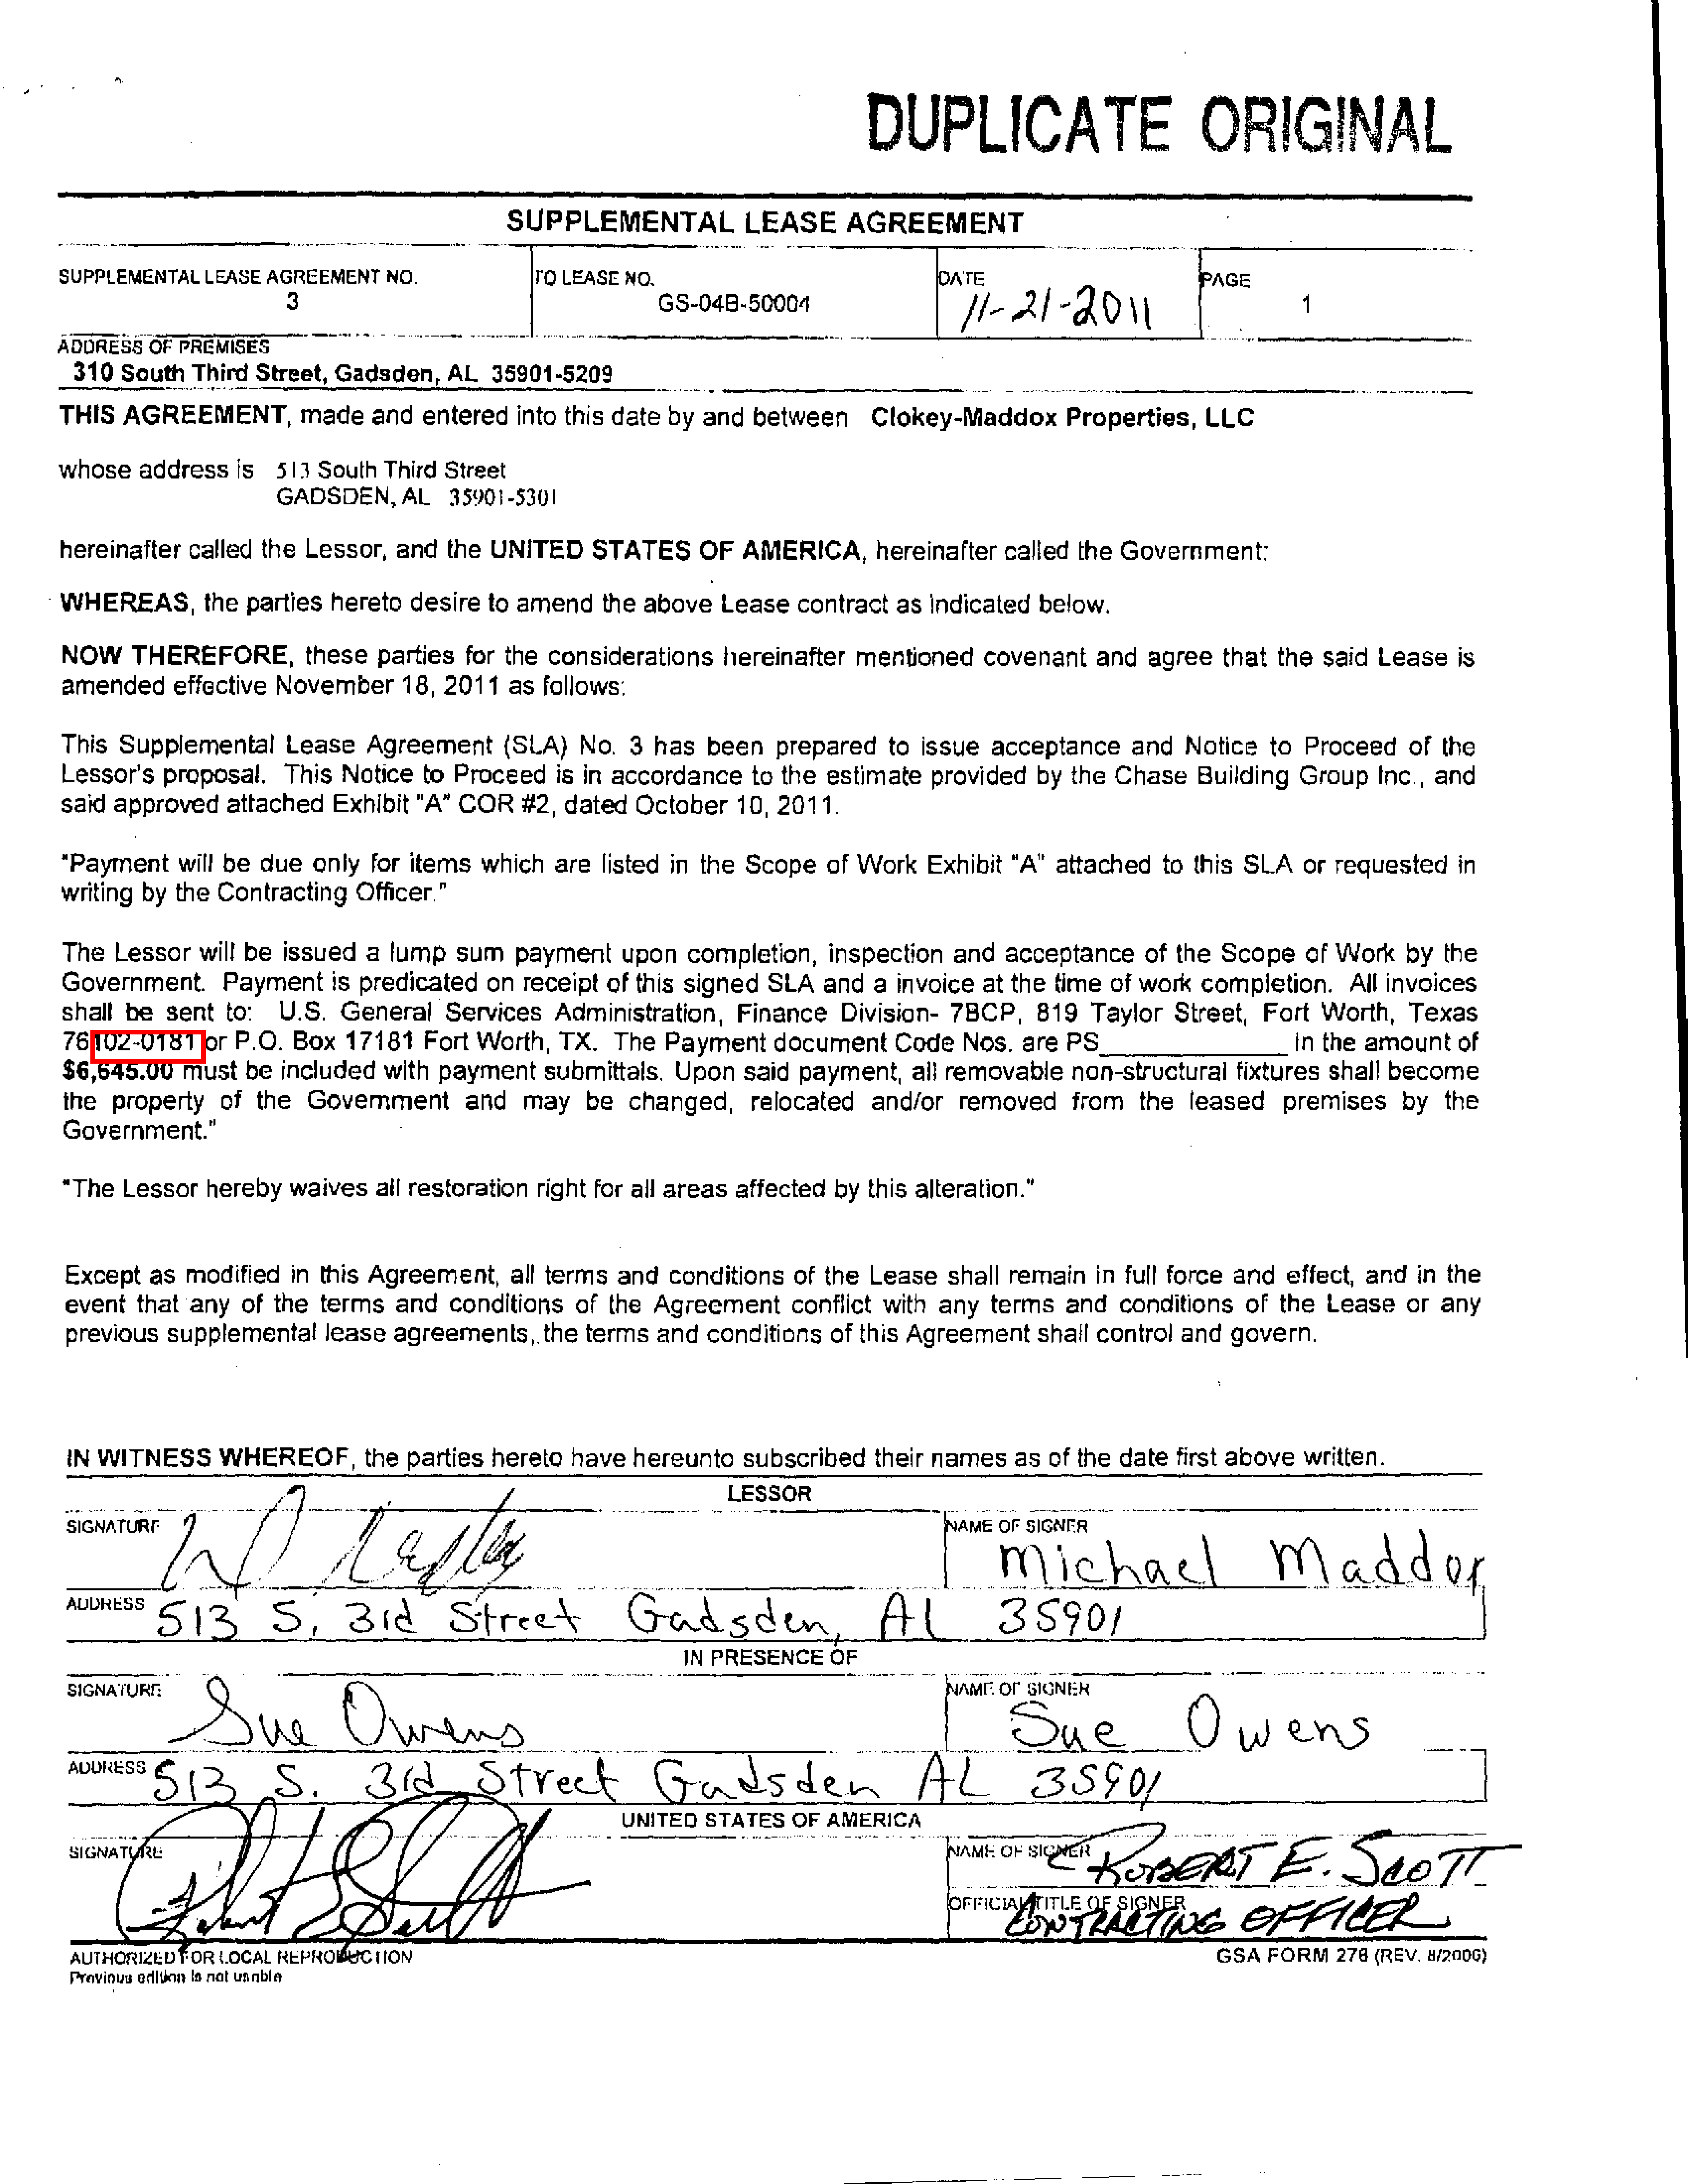 DUPLICATE ORIGINAL
SUPPLEMENTAL LEASE AGREEMENT
SUPPLEMENTAL LEASE AGREEMENT NO.
3
TO LEASE NO.
GS-04B-50004
DATE
11-21-2011
PAGE
1
ADDRESS OF PREMISES
310 South Third Street, Gadsden, AL 35901-5209
THIS AGREEMENT, made and entered into this date by and between Clokey-Maddox Properties, LLC
whose address is 513 South Third Street
GADSDEN, AL 35901-5301
hereinafter called the Lessor, and the UNITED STATES OF AMERICA, hereinafter called the Government:
WHEREAS, the parties hereto desire to amend the above Lease contract as indicated below.
NOW THEREFORE, these parties for the considerations hereinafter mentioned covenant and agree that the said Lease is
amended effective November 18, 2011 as follows:
This Supplemental Lease Agreement (SLA) No. 3 has been prepared to issue acceptance and Notice to Proceed of the
Lessor's proposal. This Notice to Proceed is in accordance to the estimate provided by the Chase Building Group Inc., and
said approved attached Exhibit "A" COR #2, dated October 10, 2011.
"Payment will be due only for items which are listed in the Scope of Work Exhibit "A" attached to this SLA or requested in
writing by the Contracting Officer."
The Lessor will be issued a lump sum payment upon completion, inspection and acceptance of the Scope of Work by the
Government. Payment is predicated on receipt of this signed SLA and a invoice at the time of work completion. All invoices
shall be sent to: U.S. General Services Administration, Finance Division- 7BCP, 819 Taylor Street, Fort Worth, Texas
76102-0181 or P.O. Box 17181 Fort Worth, TX. The Payment document Code Nos. are PS____________ in the amount of
$6,645.00 must be included with payment submittals. Upon said payment, all removable non-structural fixtures shall become
the property of the Government and may be changed, relocated and/or removed from the leased premises by the
Government."
"The Lessor hereby waives all restoration right for all areas affected by this alteration."
Except as modified in this Agreement, all terms and conditions of the Lease shall remain in full force and effect, and in the
event that any of the terms and conditions of the Agreement conflict with any terms and conditions of the Lease or any
previous supplemental lease agreements, the terms and conditions of this Agreement shall control and govern.
IN WITNESS WHEREOF, the parties hereto have hereunto subscribed their names as of the date first above written.
LESSOR
SIGNATURE
NAME OF SIGNER
Michael Maddox
ADDRESS 513 S. 3rd Street Gadsden, AL 35901
IN PRESENCE OF
SIGNATURE Sue Owens
NAME OF SIGNER
Sue Owens
ADDRESS 513 S. 3rd Street Gadsden AL 35901
UNITED STATES OF AMERICA
SIGNATURE
NAME OF SIGNER ROBERT E. SCOTT
OFFICIAL TITLE OF SIGNER
CONTRACTING OFFICER
AUTHORIZED FOR LOCAL REPRODUCTION
Previous edition is not usable
GSA FORM 276 (REV. 8/2006)